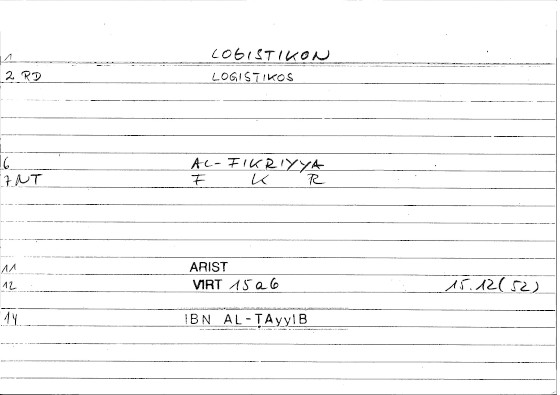 1 LOGISTIKON
2 RD LOGISTIKOS
6 AL-FIKRIYYA
7NT F K R
11 ARIST
12 VIRT 15a6 15.12(52)
14 IBN AL-ṬAyyIB